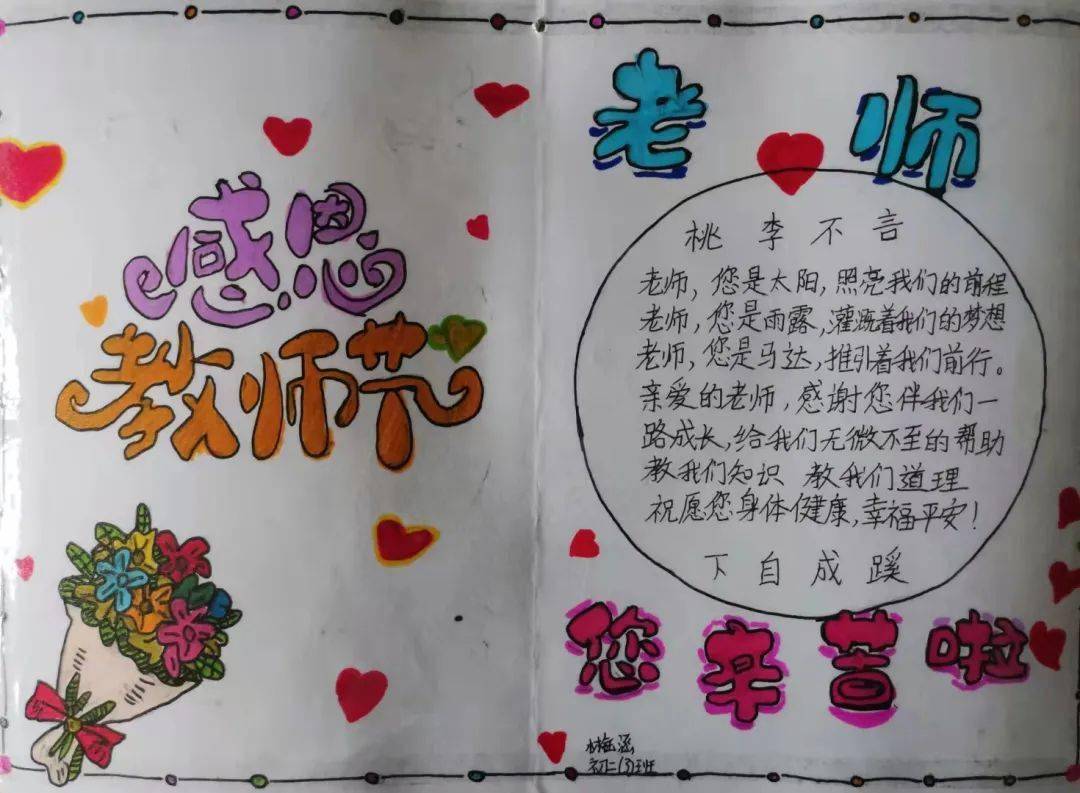 感恩
教师节
老师
桃李不言
老师，您是太阳，照亮我们的前程
老师，您是雨露，灌溉着我们的梦想
老师，您是马达，推引着我们前行。
亲爱的老师，感谢您伴我们一
路成长，给我们无微不至的帮助
教我们知识 教我们道理
祝愿您身体健康，幸福平安！
下自成蹊
您辛苦啦
初二(3)班